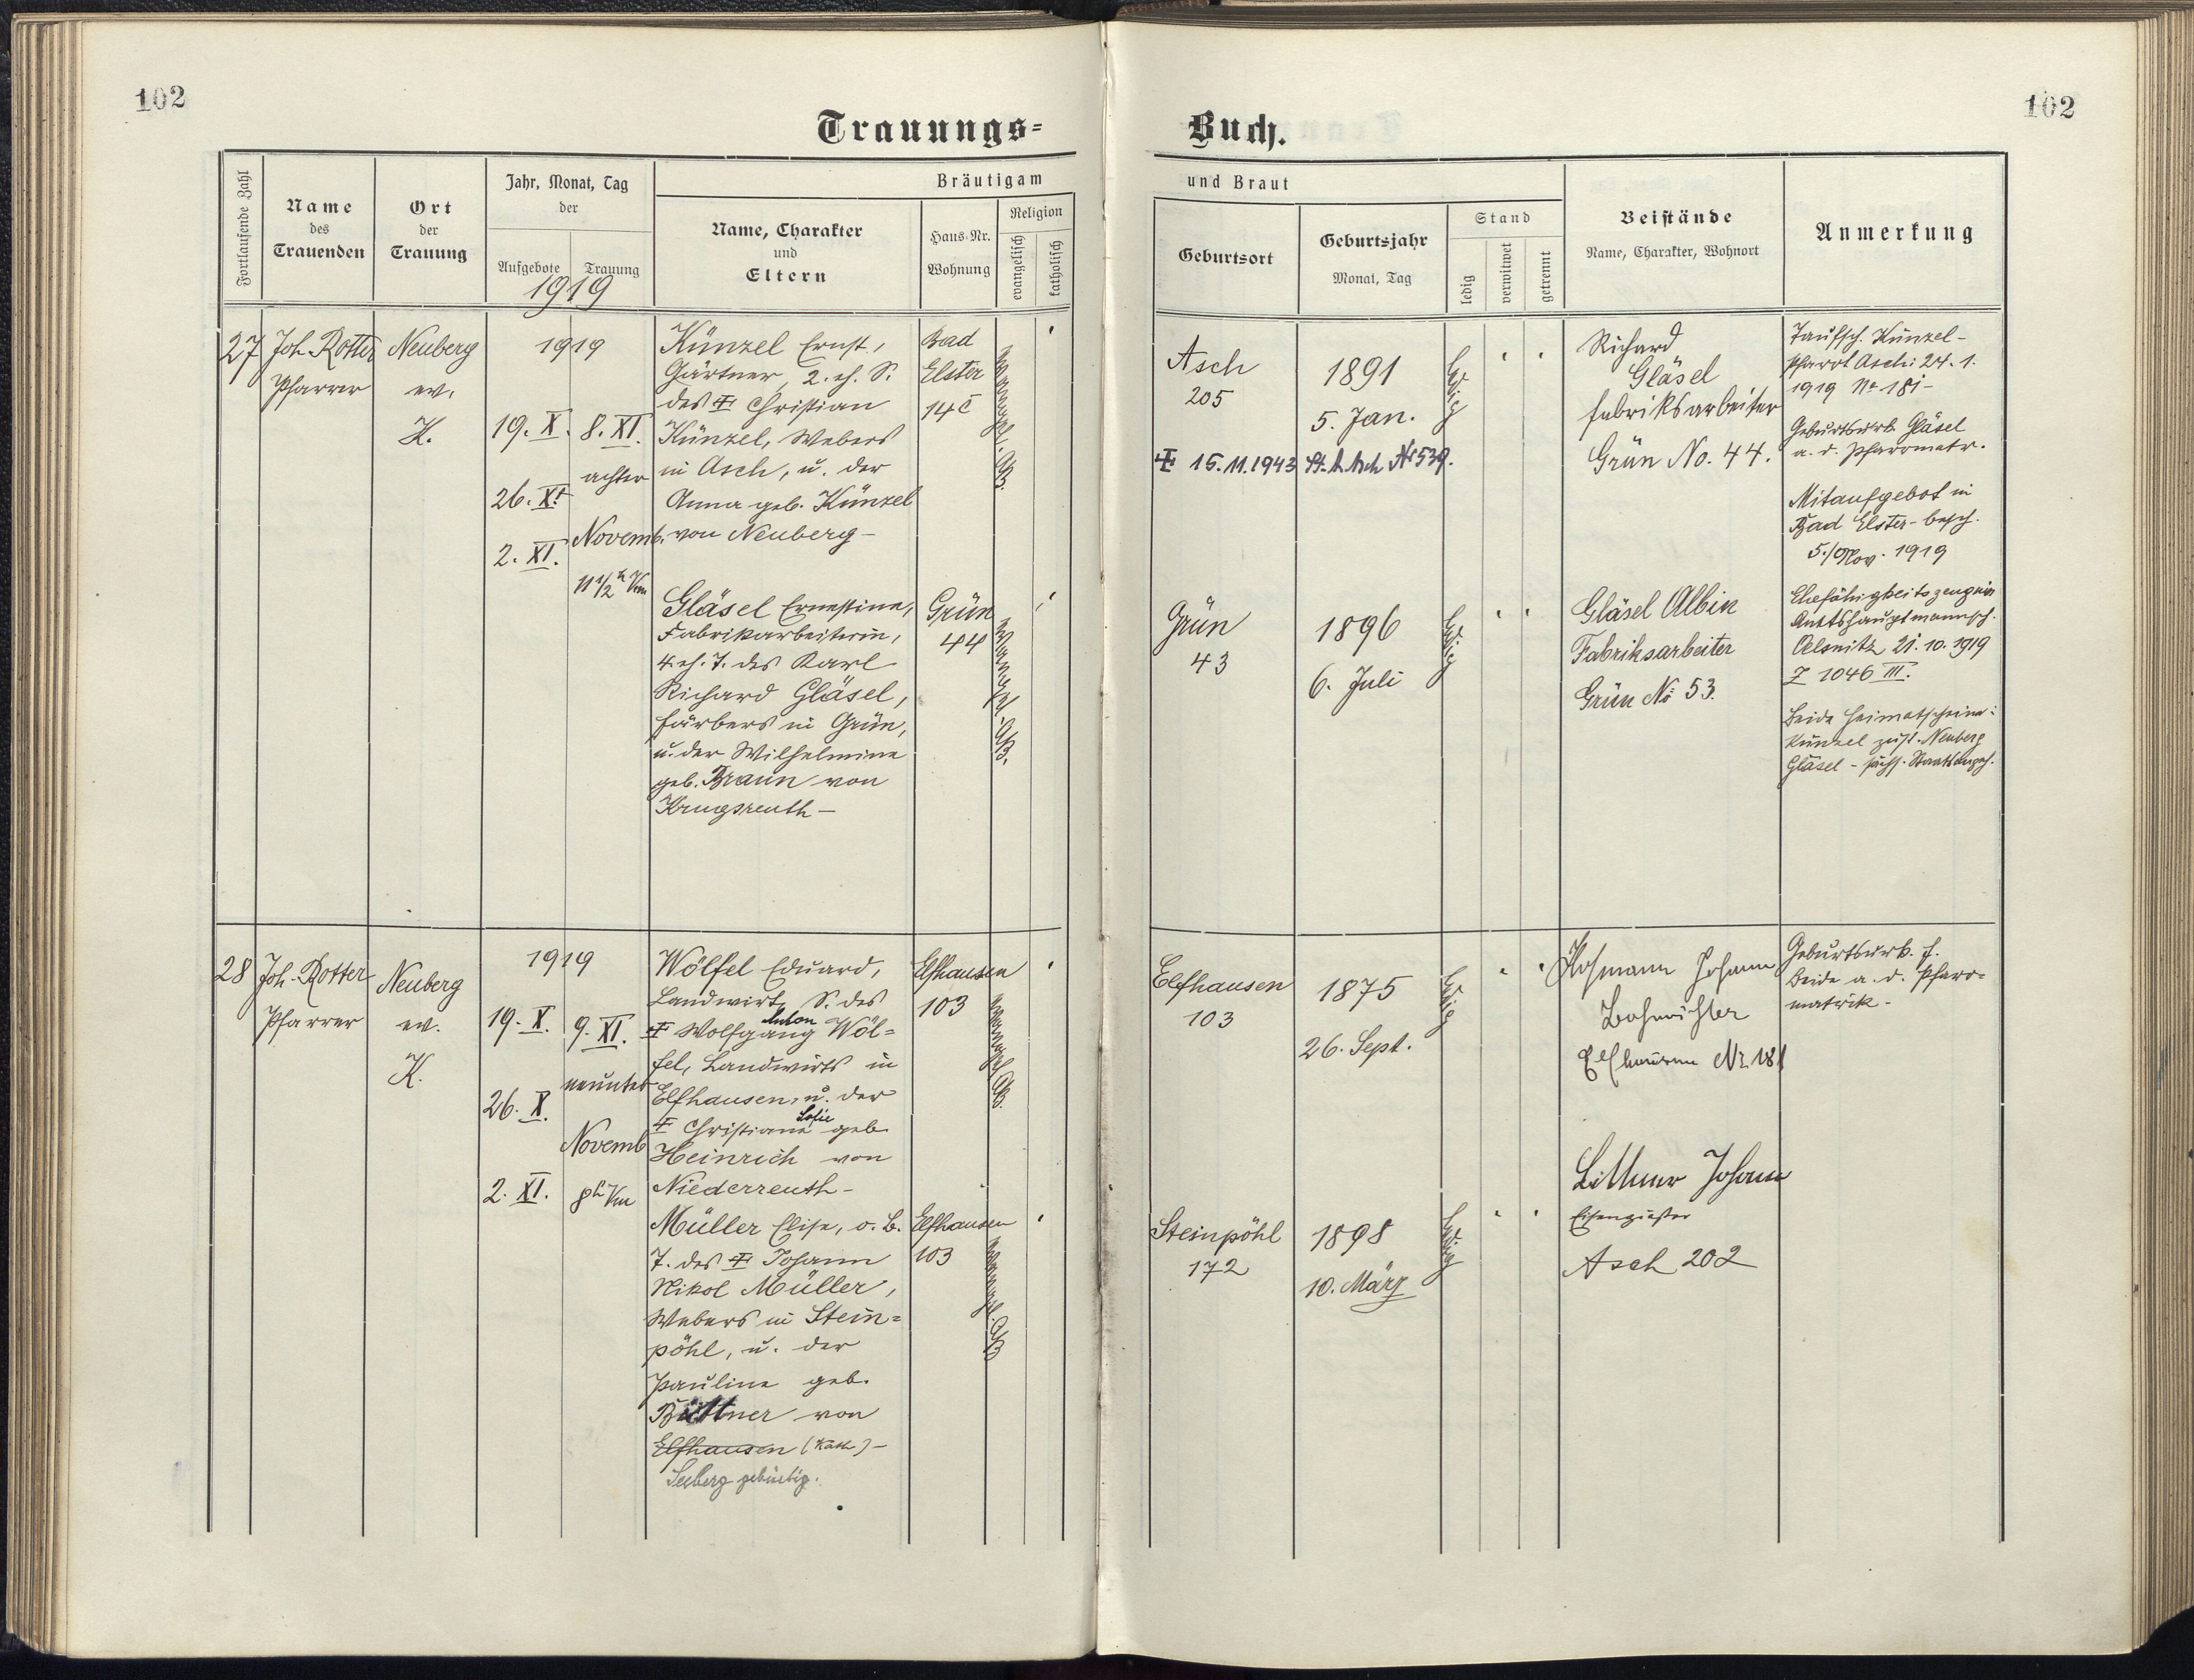 102
102
Trauungs=
Buch.
Fortlaufende Zahl
Name
des
Trauenden
Ort
der
Trauung
Jahr, Monat, Tag
der
Aufgebote
Trauung
1919
Bräutigam
Name, Charakter
und
Eltern
Haus-Nr.
Wohnung
Religion
evangelisch
katholisch
und Braut
Geburtsort
Geburtsjahr
Monat, Tag
Stand
ledig
verwitwet
getrennt
Beistände
Name, Charakter, Wohnort
Anmerkung
27
Joh. Rotter
Pfarrer
Neuberg
ev.
K.
1919
19. X.
26. X.
2. XI.
8. XI.
achter
Novemb.
11 1/2 h Vm
Künzel Ernst,
Gärtner, 2. eh. S.
des Christian
Künzel, Webers
in Asch, u. der
Anna geb. Künzel
von Neuberg -
Bad
Elster
14 c
evangel. AB.
Asch
205
1891
5. Jan.
ledig
15.11.1943 St. A. Asch Nr 539.
Richard
Gläsel
Fabriksarbeiter
Grün No. 44.
Taufsch. Künzel-
Pfarrt Asch: 24. 1.
1919 No 181-
Geburtsurk. Gläsel
a. d. Pfarrmatr.
Mitaufgebot in
Bad Elster - besch.
5./Nov. 1919
Gläsel Ernestine,
Fabrikarbeiterin,
4. eh. T. des Karl
Richard Gläsel,
Färbers in Grün,
u. der Wilhelmine
geb. Braun von
Krugsreuth -
Grün
44
evangel. AB.
Grün
43
1896
6. Juli
ledig
Gläsel Albin
Fabriksarbeiter
Grün No 53.
Ehefähigkeitszeugnis
Amtshauptmannsch.
Oelsnitz 21. 10. 1919
Z 1046 III.
Beide Heimatscheine:
Künzel zust. Neuberg
Gläsel - sächs. Staatsangeh.
28
Joh. Rotter
Pfarrer
Neuberg
ev.
K.
1919
19. X.
26. X.
2. XI.
9. XI.
neunter
Novemb
8 h Vm
Wölfel Eduard,
Landwirt, S. des
Anton
Wolfgang Wöl=
fel, Landwirts in
Elfhausen, u. der
Sofie
Christiane geb.
Heinrich von
Niederreuth -
Elfhausen
103
evangel. AB.
Elfhausen
103
1875
26. Sept.
ledig
Hofmann Johann
Elfhausen Nr. 18
Geburtsurk. f.
Beide a. d. Pfarr=
matrik -
Müller Elise, o. B.
T. des Johann
Nikol Müller,
Webers in Stein=
pöhl, u. der
Pauline geb.
Büttner von
Elfhausen (kath.) -
Seeberg gebürtig.
Elfhausen
103
evangel. AB
Steinpöhl
172
1898
10. März
ledig
Johann
Eisengießer
Asch 202